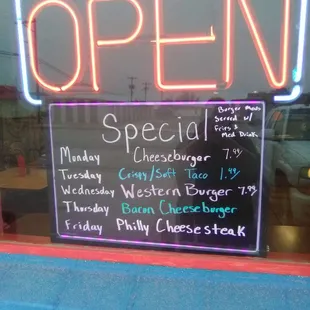 OPEN
Special
Burger
Served w/
Fries &
Med Drink
Monday Cheeseburgar 7.99
Tuesday Crispy/Soft Taco 1.49
Wednesday Western Burger 7.99
Thursday Bacon Cheeseburger
Friday Philly Cheesesteak